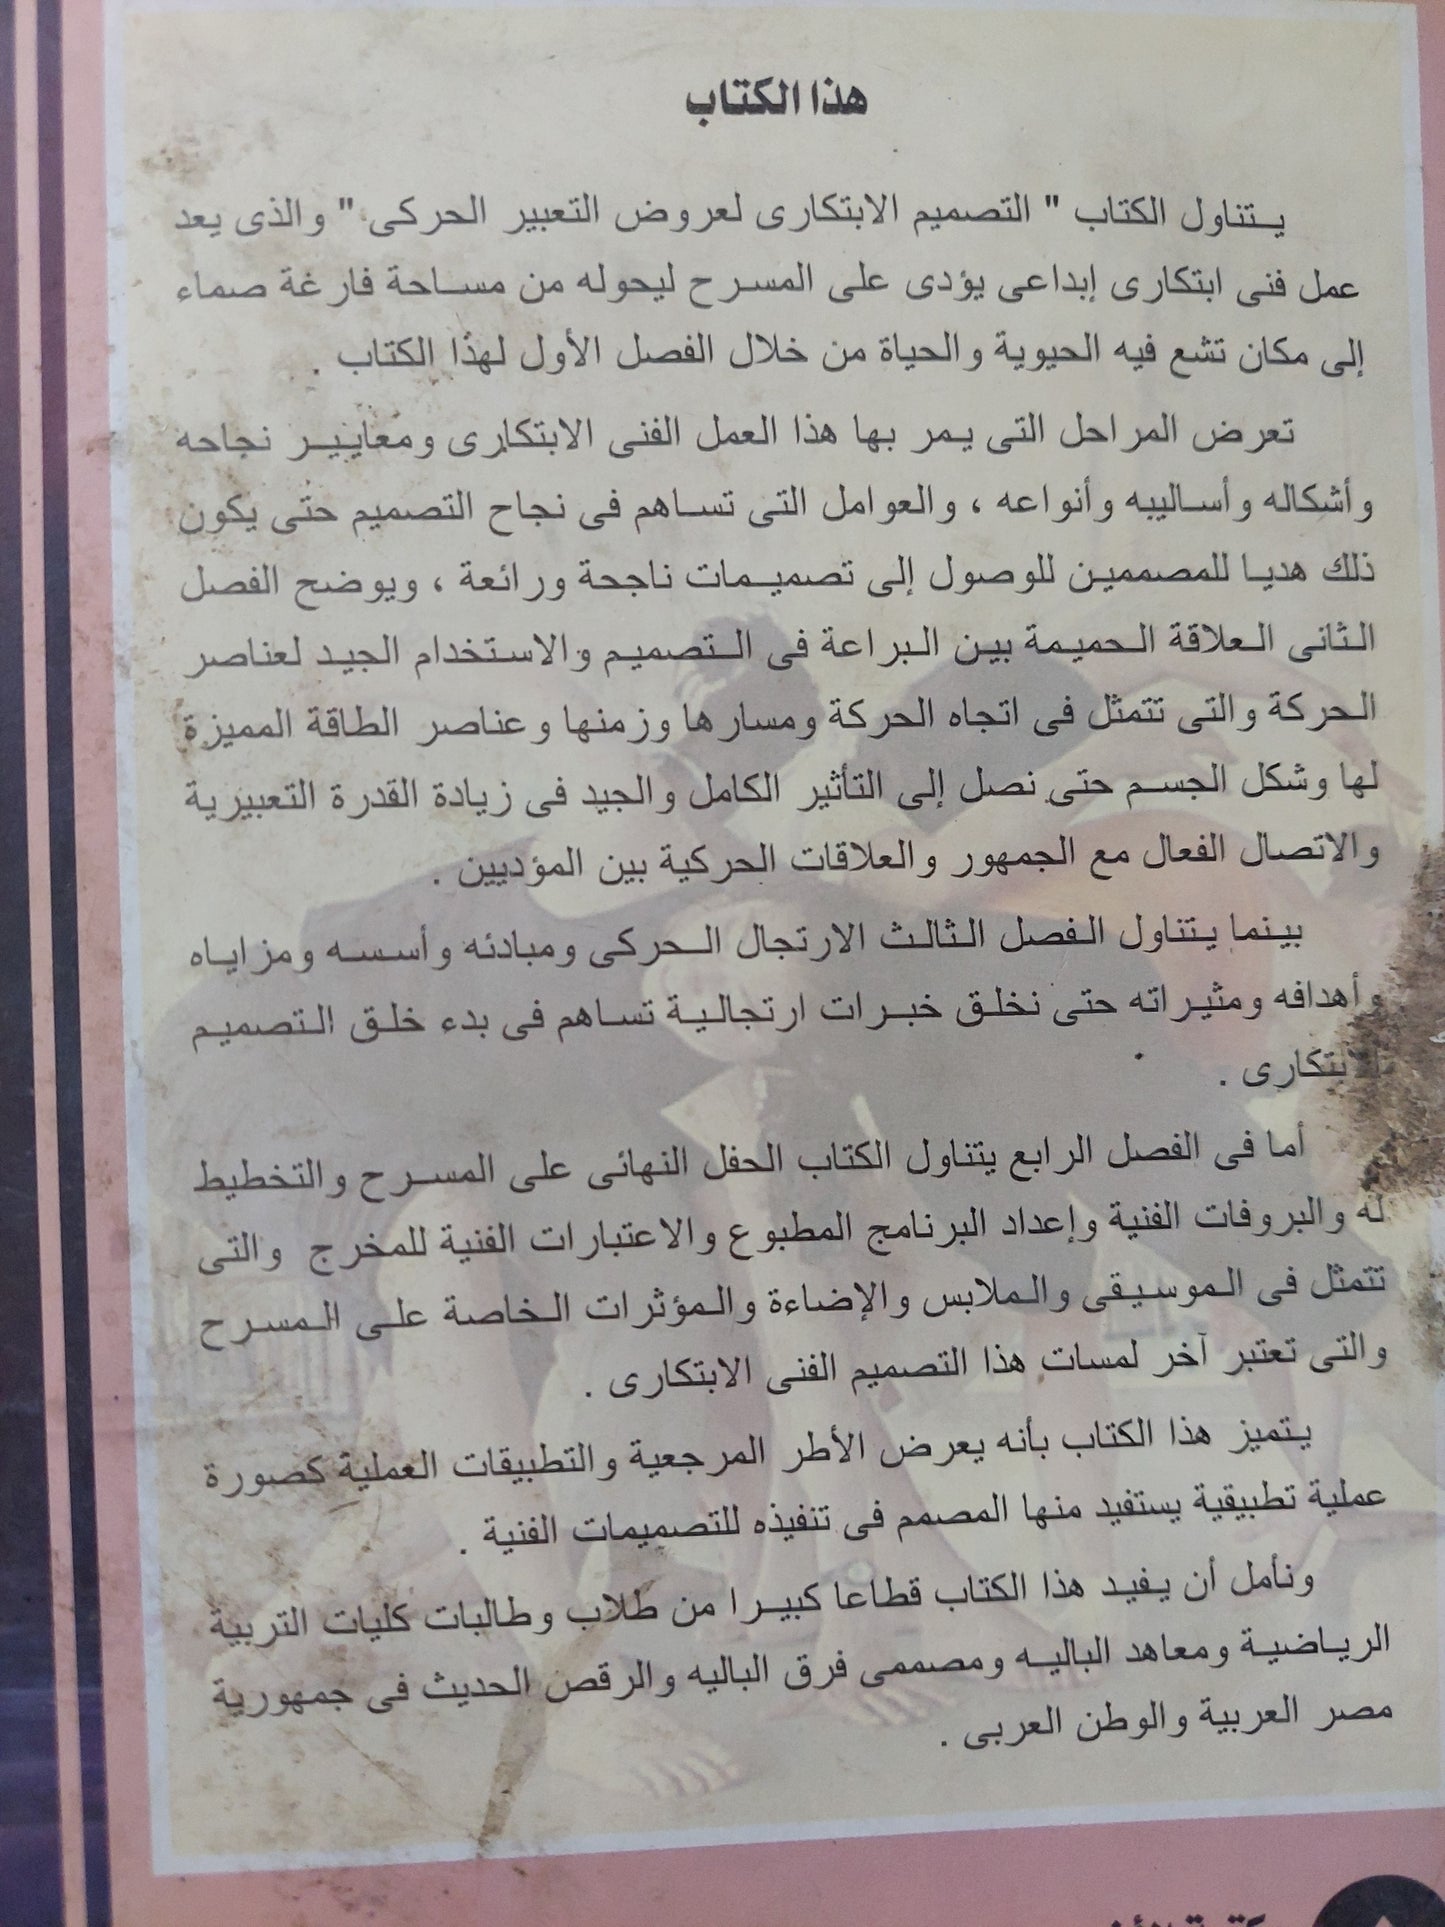 هذا الكتاب
يتناول الكتاب " التصميم الابتكارى لعروض التعبير الحركى " والذى يعد
عمل فنى ابتكارى إبداعى يؤدى على المسرح ليحوله من مساحة فارغة صماء
إلى مكان تشع فيه الحيوية والحياة من خلال الفصل الأول لهذا الكتاب .
تعرض المراحل التى يمر بها هذا العمل الفنى الابتكارى ومعايير نجاحه
وأشكاله وأساليبه وأنواعه ، والعوامل التى تساهم فى نجاح التصميم حتى يكون
ذلك هديا للمصممين للوصول إلى تصميمات ناجحة ورائعة ، ويوضح الفصل
الثانى العلاقة الحميمة بين البراعة فى التصميم والاستخدام الجيد لعناصر
الحركة والتى تتمثل فى اتجاه الحركة ومسارها وزمنها وعناصر الطاقة المميزة
لها وشكل الجسم حتى نصل إلى التأثير الكامل والجيد فى زيادة القدرة التعبيرية
والاتصال الفعال مع الجمهور والعلاقات الحركية بين المؤديين .
بينما يتناول الفصل الثالث الارتجال الحركى ومبادئه وأسسه ومزاياه
وأهدافه ومثيراته حتى نخلق خبرات ارتجالية تساهم فى بدء خلق التصميم
الابتكارى .
أما فى الفصل الرابع يتناول الكتاب الحفل النهائى على المسرح والتخطيط
له والبروفات الفنية وإعداد البرنامج المطبوع والاعتبارات الفنية للمخرج والتى
تتمثل فى الموسيقى والملابس والإضاءة والمؤثرات الخاصة على المسرح
والتى تعتبر آخر لمسات هذا التصميم الفنى الابتكارى .
يتميز هذا الكتاب بأنه يعرض الأطر المرجعية والتطبيقات العملية كصورة
عملية تطبيقية يستفيد منها المصمم فى تنفيذه للتصميمات الفنية .
ونأمل أن يفيد هذا الكتاب قطاعا كبيرا من طلاب وطالبات كليات التربية
الرياضية ومعاهد الباليه ومصممى فرق الباليه والرقص الحديث فى جمهورية
مصر العربية والوطن العربى .